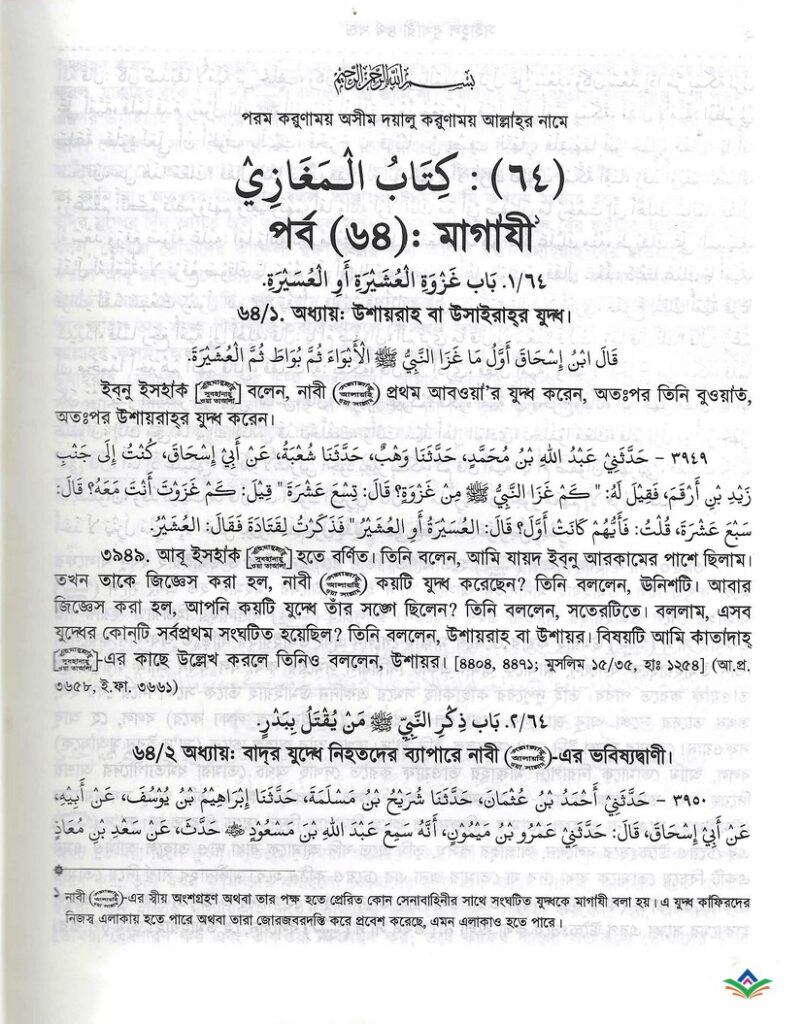 بِسْمِ اللهِ الرَّحْمٰنِ الرَّحِيْمِ
পরম করুণাময় অসীম দয়ালু করুণাময় আল্লাহ্‌র নামে
(٦٤) : كِتَابُ الْمَغَازِيْ
পর্ব (৬৪) : মাগাযী১
١/٦٤. بَاب غَزْوَةِ الْعُشَيْرَةِ أَوِ الْعُسَيْرَةِ.
৬৪/১. অধ্যায়: উশায়রাহ বা উসাইরাহ্‌র যুদ্ধ।
قَالَ ابْنُ إِسْحَاقَ أَوَّلُ مَا غَزَا النَّبِيُّ ﷺ الْأَبْوَاءَ ثُمَّ بُوَاطَ ثُمَّ الْعُشَيْرَةَ.
ইব্‌নু ইসহাক বলেন, নাবী প্রথম আবওয়া'র যুদ্ধ করেন, অতঃপর তিনি বুওয়াত,
অতঃপর উশায়রাহ্‌র যুদ্ধ করেন।
٣٩٤٩ - حَدَّثَنِيْ عَبْدُ اللهِ بْنُ مُحَمَّدٍ، حَدَّثَنَا وَهْبٌ، حَدَّثَنَا شُعْبَةُ، عَنْ أَبِيْ إِسْحَاقَ، كُنْتُ إِلَى جَنْبِ
زَيْدِ بْنِ أَرْقَمَ، فَقِيْلَ لَهُ: " كَمْ غَزَا النَّبِيُّ ﷺ مِنْ غَزْوَةٍ؟ قَالَ: تِسْعَ عَشْرَةَ " قِيْلَ: كَمْ غَزَوْتَ أَنْتَ مَعَهُ؟ قَالَ:
سَبْعَ عَشْرَةَ، قُلْتُ: فَأَيُّهُمْ كَانَتْ أَوَّلَ؟ قَالَ: الْعُسَيْرَةُ أَوِ الْعُشَيْرُ " فَذَكَرْتُ لِقَتَادَةَ فَقَالَ: الْعُشَيْرُ.
৩৯৪৯. আবূ ইসহাক হতে বর্ণিত। তিনি বলেন, আমি যায়দ ইব্‌নু আরকামের পাশে ছিলাম।
তখন তাকে জিজ্ঞেস করা হল, নাবী কয়টি যুদ্ধ করেছেন? তিনি বললেন, ঊনিশটি। আবার
জিজ্ঞেস করা হল, আপনি কয়টি যুদ্ধে তাঁর সঙ্গে ছিলেন? তিনি বললেন, সতেরটিতে। বললাম, এসব
যুদ্ধের কোন্‌টি সর্বপ্রথম সংঘটিত হয়েছিল? তিনি বললেন, উশায়রাহ বা উশায়র। বিষয়টি আমি কাতাদাহ্
-এর কাছে উল্লেখ করলে তিনিও বললেন, উশায়র। [৪৪০৪, ৪৪৭১; মুসলিম ১৫/৩৫, হাঃ ১২৫৪] (আ.প্র.
৩৬৫৮, ই.ফা. ৩৬৬১)
٢/٦٤. بَاب ذِكْرِ النَّبِيِّ ﷺ مَنْ يُقْتَلُ بِبَدْرٍ.
৬৪/২ অধ্যায়: বাদ্‌র যুদ্ধে নিহতদের ব্যাপারে নাবী -এর ভবিষ্যদ্বাণী।
٣٩٥٠ - حَدَّثَنِيْ أَحْمَدُ بْنُ عُثْمَانَ، حَدَّثَنَا شُرَيْحُ بْنُ مَسْلَمَةَ، حَدَّثَنَا إِبْرَاهِيْمُ بْنُ يُوْسُفَ، عَنْ أَبِيْهِ،
عَنْ أَبِيْ إِسْحَاقَ، قَالَ: حَدَّثَنِيْ عَمْرُو بْنُ مَيْمُوْنٍ، أَنَّهُ سَمِعَ عَبْدَ اللهِ بْنَ مَسْعُوْدٍ حَدَّثَ، عَنْ سَعْدِ بْنِ مُعَاذٍ
১ নাবী -এর স্বীয় অংশগ্রহণ অথবা তার পক্ষ হতে প্রেরিত কোন সেনাবাহিনীর সাথে সংঘটিত যুদ্ধকে মাগাযী বলা হয়। এ যুদ্ধ কাফিরদের
নিজস্ব এলাকায় হতে পারে অথবা তারা জোরজবরদস্তি করে প্রবেশ করেছে, এমন এলাকাও হতে পারে।